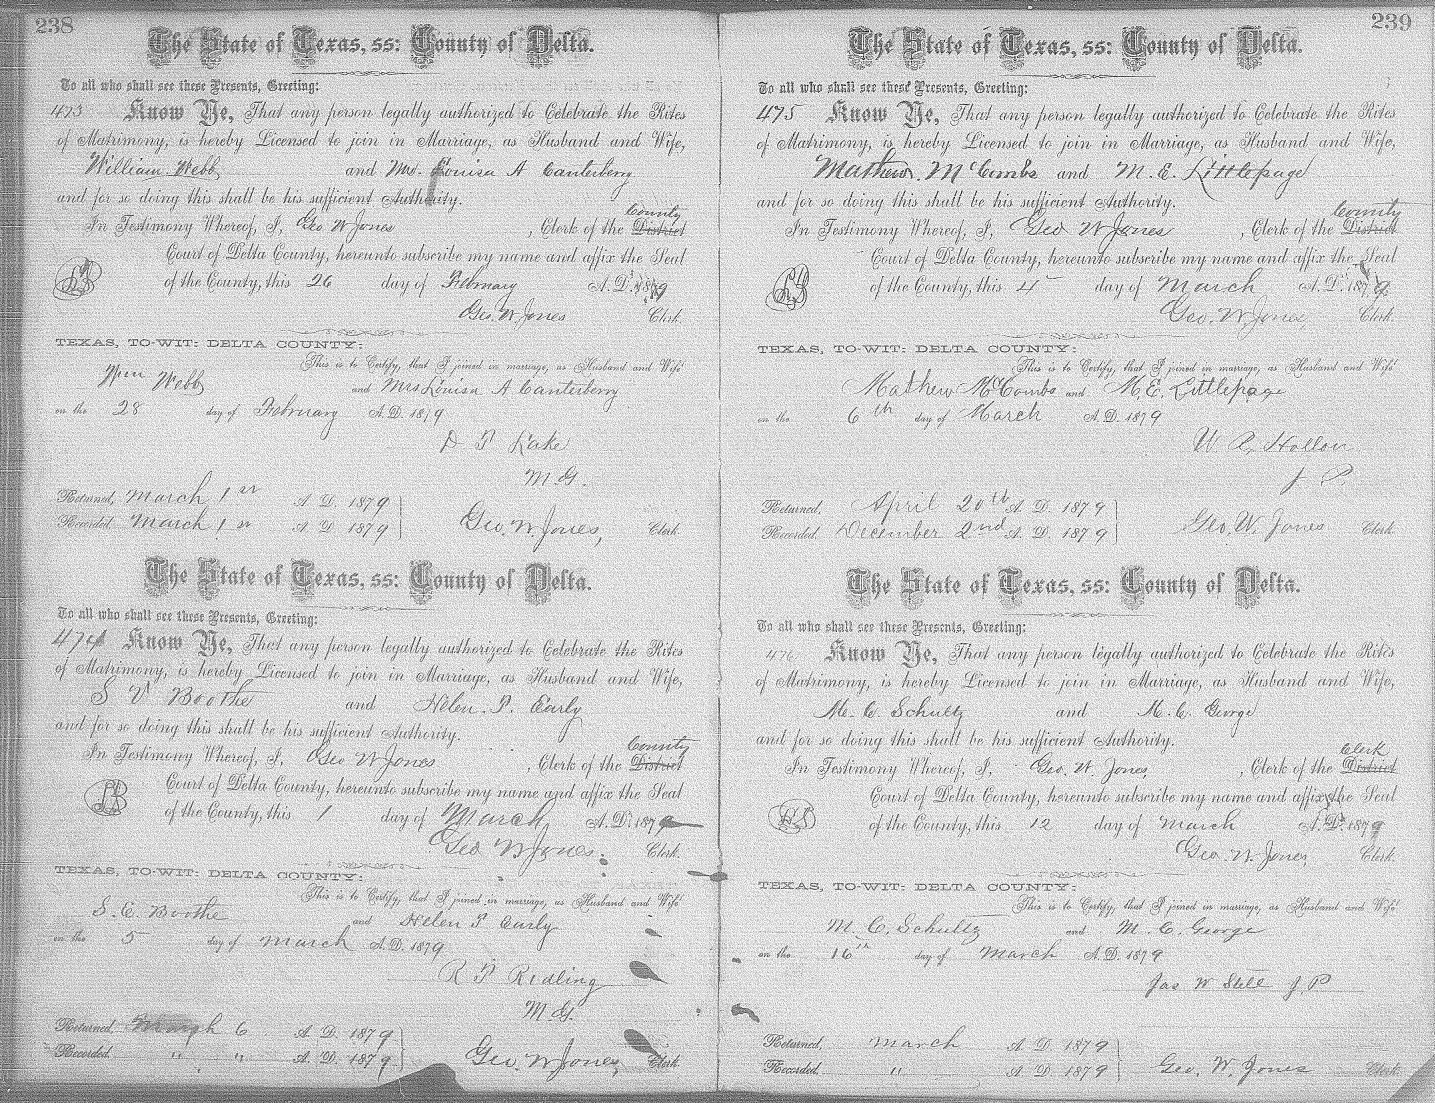 238
The State of Texas, ss: County of Delta.
To all who shall see these Presents, Greeting:
473 Know Ye, That any person legally authorized to Celebrate the Rites
of Matrimony, is hereby Licensed to join in Marriage, as Husband and Wife,
William Webb and Mrs. Louisa A Canterberry
and for so doing this shall be his sufficient Authority.
County
In Testimony Whereof, I, Geo W Jones, Clerk of the District
Court of Delta County, hereunto subscribe my name and affix the Seal
LS of the County, this 26 day of February A. D. 1879
Geo. W. Jones Clerk.
TEXAS, TO-WIT: DELTA COUNTY:
This is to Certify, that I joined in marriage, as Husband and Wife
Wm Webb and Mrs Louisa A Canterberry
on the 28 day of February A. D. 1879
D P Lake
M G.
Returned, March 1st A. D. 1879
Recorded, March 1st A. D. 1879 Geo. W. Jones, Clerk.
The State of Texas, ss: County of Delta.
To all who shall see these Presents, Greeting:
474 Know Ye, That any person legally authorized to Celebrate the Rites
of Matrimony, is hereby Licensed to join in Marriage, as Husband and Wife,
Boothe and Helen. P. Early
and for so doing this shall be his sufficient Authority.
County
In Testimony Whereof, I, Geo W Jones, Clerk of the District
Court of Delta County, hereunto subscribe my name and affix the Seal
LS of the County, this 1 day of March A. D. 1879
Geo W Jones. Clerk.
TEXAS, TO-WIT: DELTA COUNTY:
This is to Certify, that I joined in marriage, as Husband and Wife
S. E. Boothe and Helen P Early
on the 5 day of March A. D. 1879
R P Ridling
M G.
Returned, March 6 A. D. 1879
Recorded, " " A. D. 1879 Geo. W Jones, Clerk.
239
The State of Texas, ss: County of Delta.
To all who shall see these Presents, Greeting:
475 Know Ye, That any person legally authorized to Celebrate the Rites
of Matrimony, is hereby Licensed to join in Marriage, as Husband and Wife,
Mathew. McCombs and M. E. Littlepage
and for so doing this shall be his sufficient Authority.
County
In Testimony Whereof, I, Geo W Jones, Clerk of the District
Court of Delta County, hereunto subscribe my name and affix the Seal
LS of the County, this 4 day of March A. D. 1879
Geo. W. Jones, Clerk.
TEXAS, TO-WIT: DELTA COUNTY:
This is to Certify, that I joined in marriage, as Husband and Wife
Mathew McCombs and M. E. Littlepage
on the 6th day of March A. D. 1879
Hollon
J P.
Returned, April 20th A. D. 1879
Recorded, December 2nd A. D. 1879 Geo. W. Jones Clerk.
The State of Texas, ss: County of Delta.
To all who shall see these Presents, Greeting:
476 Know Ye, That any person legally authorized to Celebrate the Rites
of Matrimony, is hereby Licensed to join in Marriage, as Husband and Wife,
M. C. Schultz and M. C. George
and for so doing this shall be his sufficient Authority.
Clerk
In Testimony Whereof, I, Geo. W. Jones, Clerk of the District
Court of Delta County, hereunto subscribe my name and affix the Seal
LS of the County, this 12 day of March A. D. 1879
Geo. W. Jones Clerk.
TEXAS, TO-WIT: DELTA COUNTY:
This is to Certify, that I joined in marriage, as Husband and Wife
M. C. Schultz and M. C. George
on the 16th day of March A. D. 1879
Jas W Still J. P
Returned, March A. D. 1879
Recorded, " A. D. 1879 Geo. W. Jones Clerk.